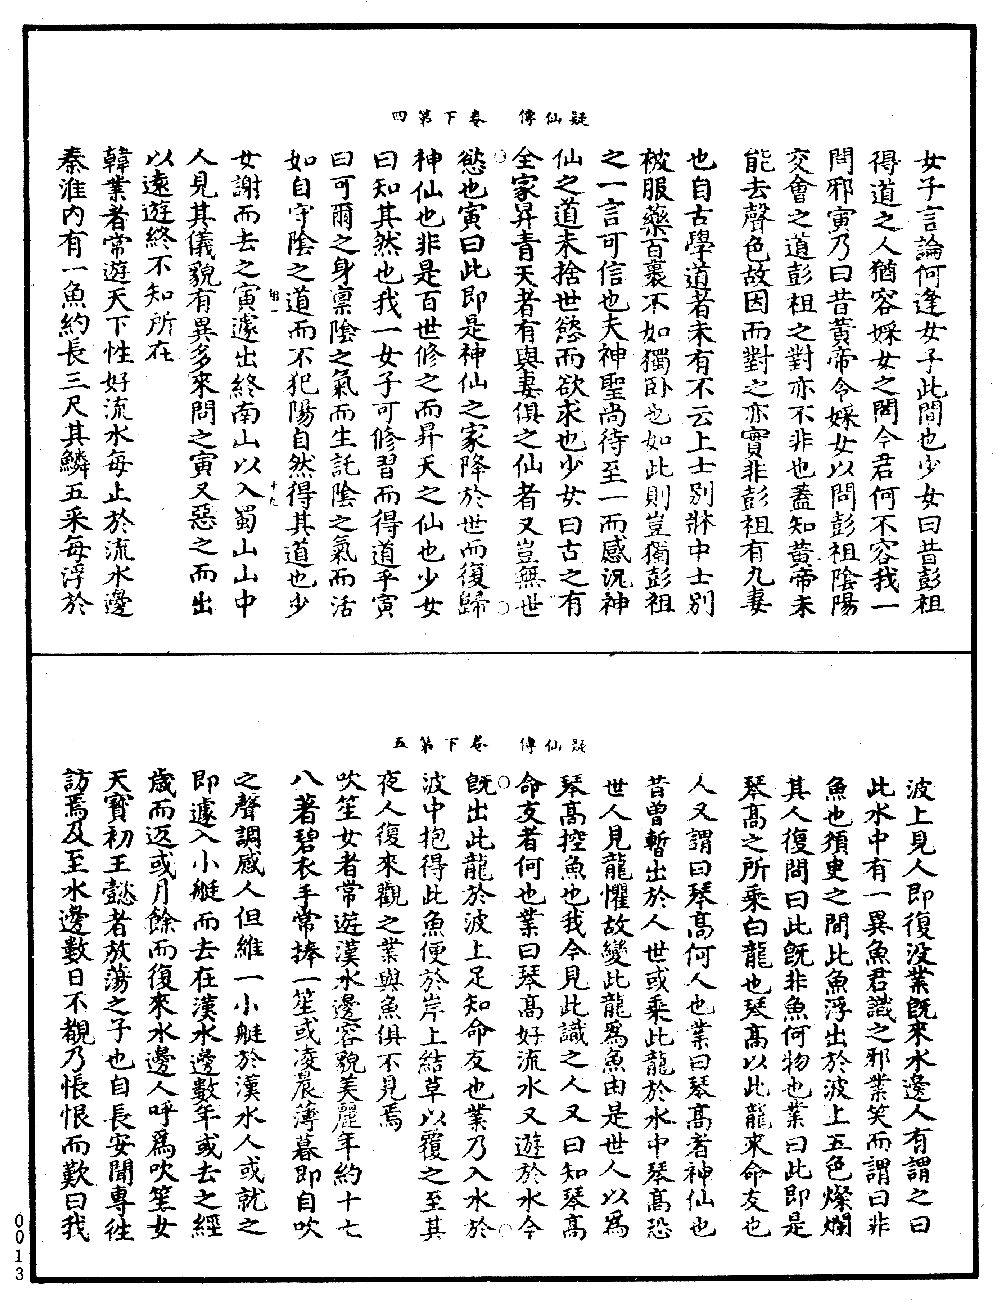 疑仙傳　卷下第四
女子言論何逢女子此間也少女曰昔彭祖
得道之人猶容婇女之問今君何不容我一
問邪寅乃曰昔黃帝令婇女以問彭祖陰陽
交會之道彭祖之對亦不非也蓋知黃帝未
能去聲色故因而對之亦實非彭祖有九妻
也自古學道者未有不云上士別牀中士別
被服藥百裹不如獨卧也如此則豈獨彭祖
之一言可信也夫神聖尚待至一而感況神
仙之道未捨世慾而欲求也少女曰古之有
全家昇青天者有與妻俱之仙者又豈無世
慾也寅曰此即是神仙之家降於世而復歸
神仙也非是百世修之而昇天之仙也少女
曰知其然也我一女子可修習而得道乎寅
曰可爾之身稟陰之氣而生託陰之氣而活
如自守陰之道而不犯陽自然得其道也少
十九
女謝而去之寅遽出終南山以入蜀山山中
人見其儀貌有異多來問之寅又惡之而出
以遠遊終不知所在
韓業者常遊天下性好流水每止於流水邊
秦淮內有一魚約長三尺其鱗五采每浮於
疑仙傳　卷下第五
波上見人即復沒業旣來水邊人有謂之曰
此水中有一異魚君識之邪業笑而謂曰非
魚也須臾之間此魚浮出於波上五色燦爛
其人復問曰此旣非魚何物也業曰此即是
琴高之所乘白龍也琴高以此龍來命友也
人又謂曰琴高何人也業曰琴高者神仙也
昔曾暫出於人世或乘此龍於水中琴高恐
世人見龍懼故變此龍爲魚由是世人以爲
琴高控魚也我今見此識之人又曰知琴高
命友者何也業曰琴高好流水又遊於水今
旣出此龍於波上足知命友也業乃入水於
波中抱得此魚便於岸上結草以覆之至其
夜人復來觀之業與魚俱不見焉
吹笙女者常遊漢水邊容貌美麗年約十七
八著碧衣手常捧一笙或淩晨薄暮即自吹
之聲調感人但維一小艇於漢水人或就之
即遽入小艇而去在漢水邊數年或去之經
歲而返或月餘而復來水邊人呼爲吹笙女
天寶初王懿者放蕩之子也自長安聞專往
訪焉及至水邊數日不覩乃悵恨而歎曰我
0013